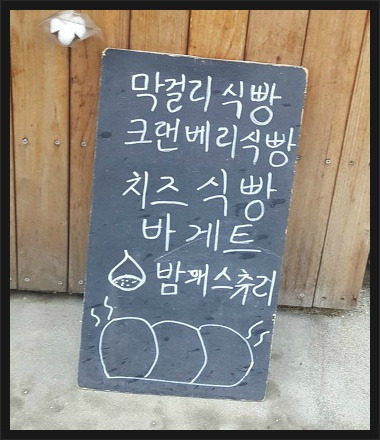 막걸리 식빵
크랜베리식빵
치즈 식빵
바게트
밤패스츄리